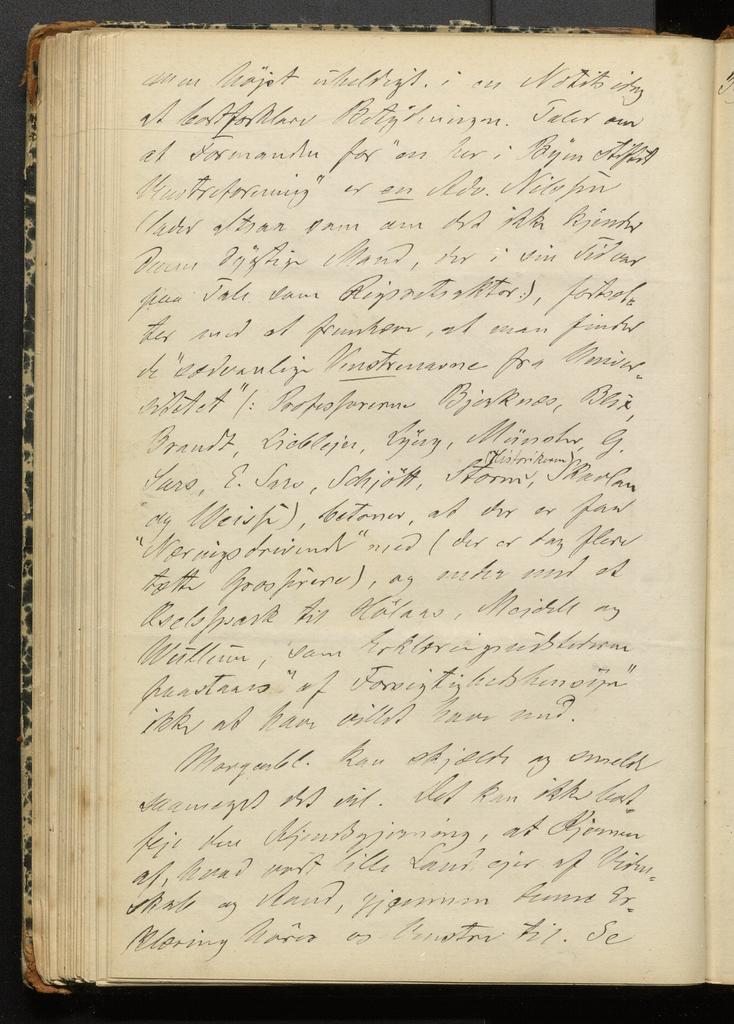 men højst uheldigt. i en Notits idag
at bortforklare Betydningen. Taler om
at Formanden for "en her i Byen stiftet
Venstreforening" er en Adv. Nilssen
(lader altsaa som om det ikke kjender
denne dygtige Mand, der i sin Tid var
paa Tale som Rigsretsaktor!), fortsæt-
ter med at fremhæve, at man finder
de "sædvanlige Venstrenavne fra Univer-
sitetet" (: Professorerne Bjerknes, Blix,
Brandt, Lieblein, Lyng, Münster, G.
Sars, E. Sars, Schjøtt, Storm (Historikeren), Skavlan
og Weisse), betoner, at der er faa
"Næringsdrivende" med (der er dog flere
tætte Grosserere), og ender med et
Æselspark til Hølaas, Mejdell og
Wullum, som Erklæringsudstederne
paastaaes "af Forsigtighedshensyn"
ikke at have villet have med.
Morgenbl. kan skjælde og smelde
saameget det vil. Det kan ikke bort-
feje den Kjendsgjerning, at Kjernen
af, hvad vort lille Land ejer af Viden-
skab og Aand, gjennem denne Er-
klæring hører os Venstre til. Se